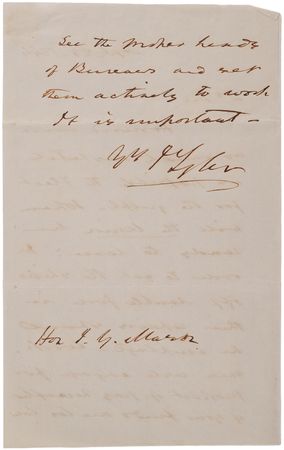 See the proper heads
of Bureaus and set
them actively to work
It is important –
Yrs J Tyler
Hon J. Y. Mason